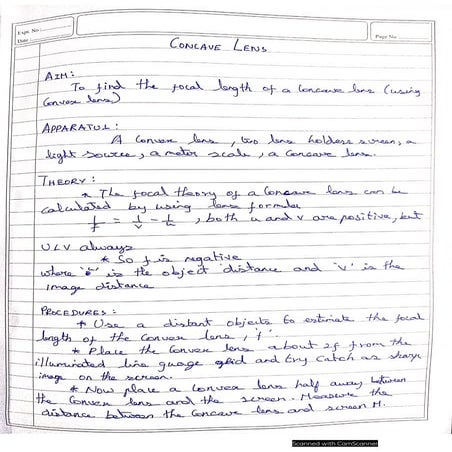 Expt. No.
Date
Page No.
CONCAVE LENS
AIM:
To find the focal length of a concave lens (using
convex lens)
APPARATUS:
A convex lens, two lens holders screen, a
light source, a meter scale, a concave lens.
THEORY:
* The focal theory of a concave lens can be
calculated by using lens formula
1/f = 1/v - 1/u, both u and v are positive, but
U<V always
* So f is negative
where is the object distance and 'v' is the
image distance
PROCEDURES:
* Use a distant objects to estimate the focal
length of the convex lens, 'f'.
* Place the convex lens about 2f from the
illuminated line guage grid and try catch as sharp
image on the screen.
* Now place a convex lens half away between
the convex lens and the screen. Measure the
distance between the concave lens and screen M.
Scanned with CamScanner